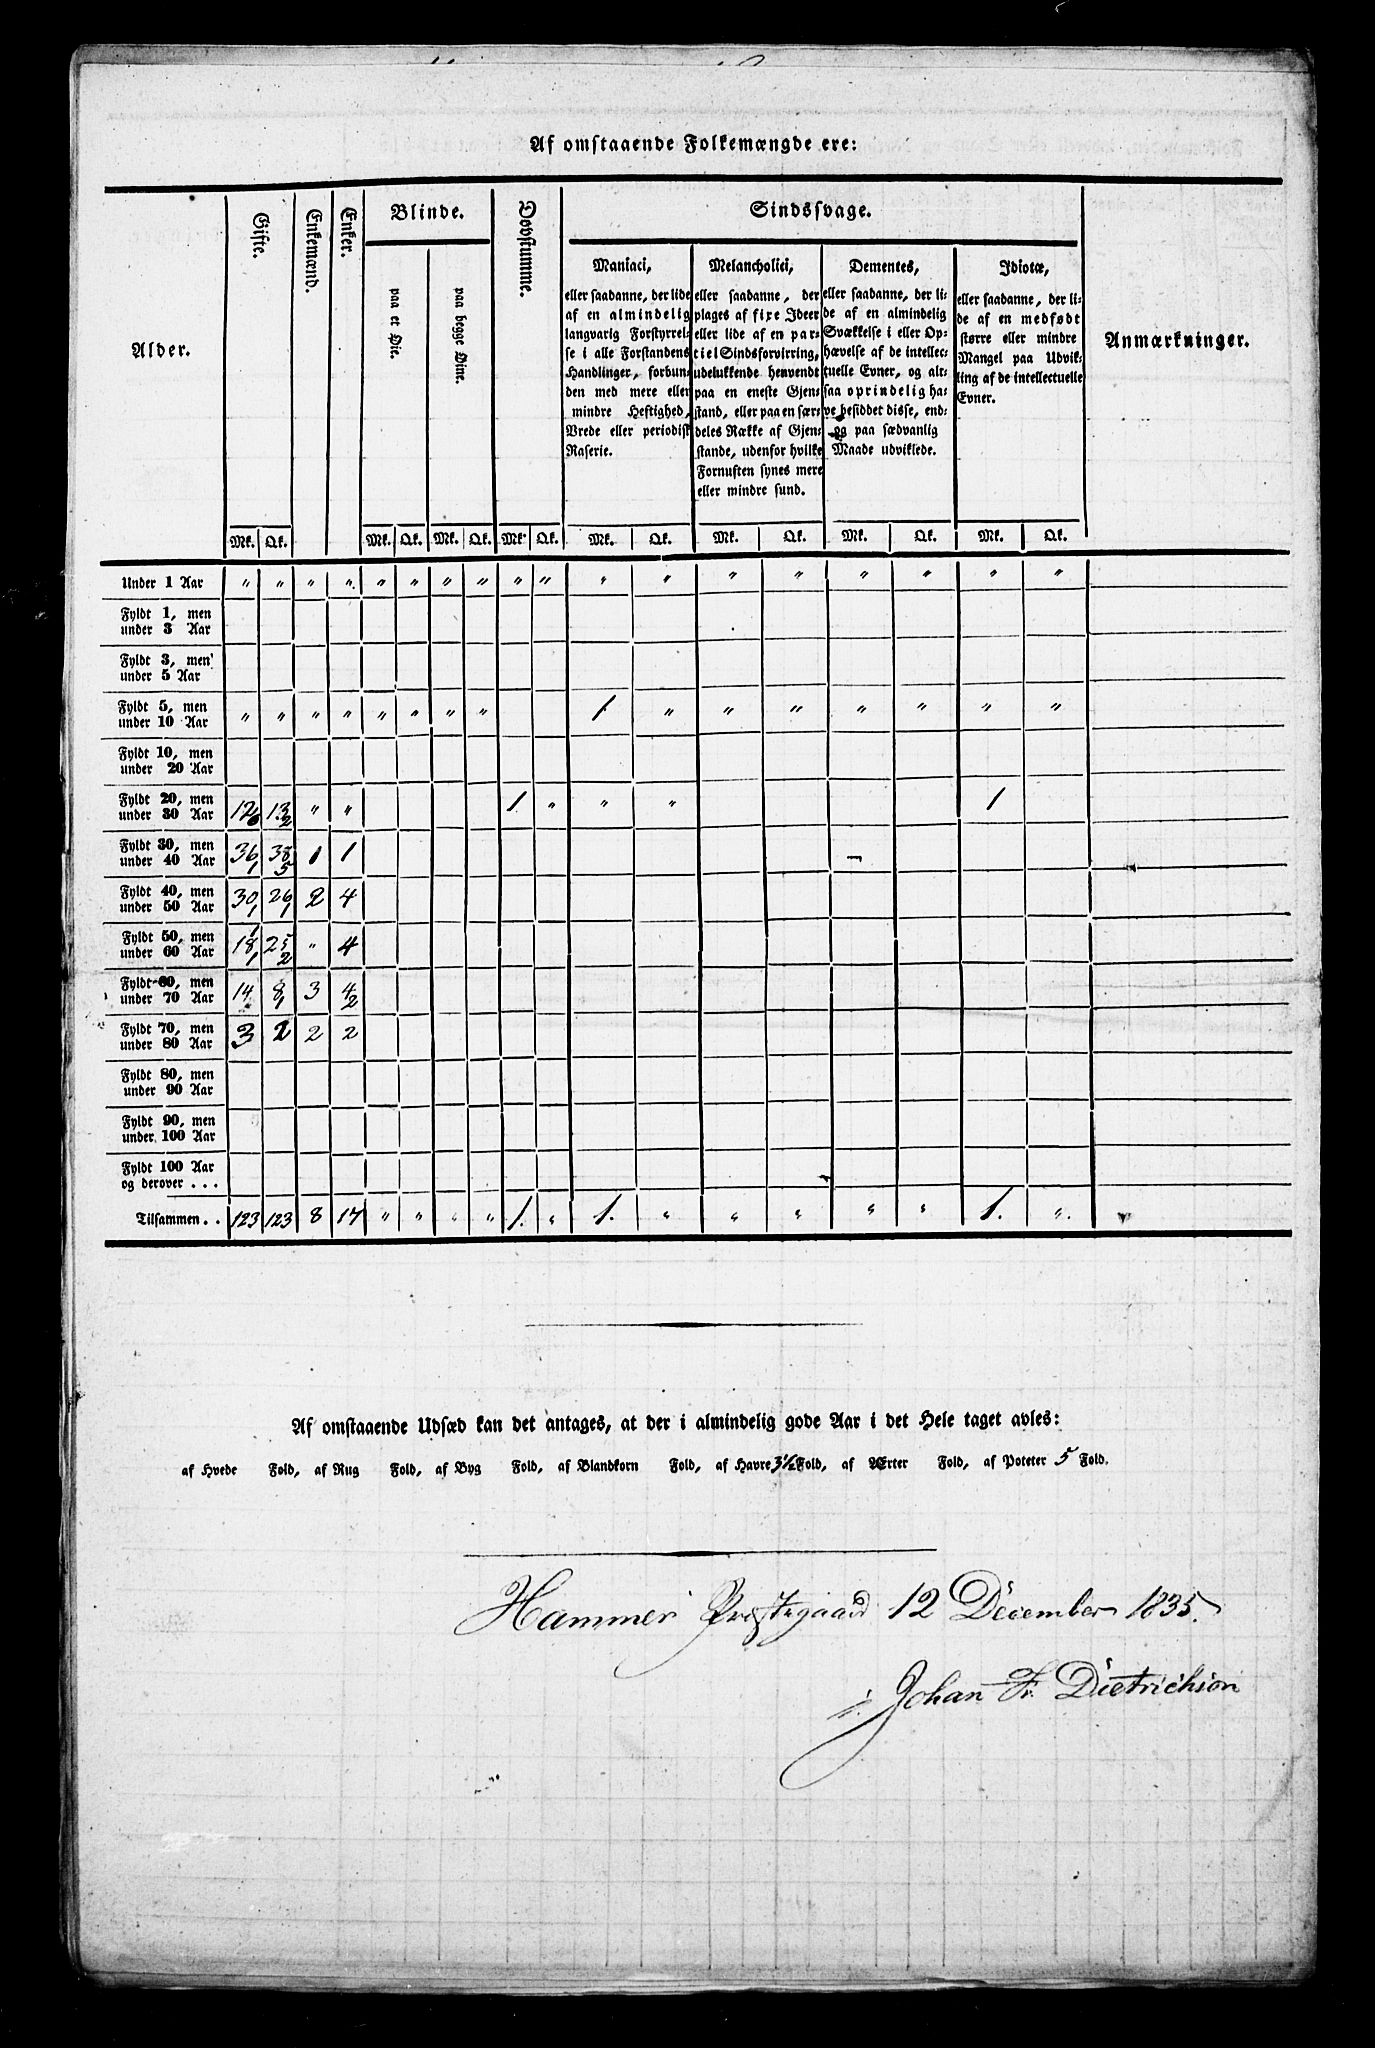 Af omstaaende Folkemængde ere:
Alder.
Gifte.
Enkemænd.
Enker.
Blinde.
paa et Øie.
paa begge Øine.
Døvstumme.
Sindssvage.
Maniaci,
eller saadanne, der lide
af en almindelig
langvarig Forstyrrel-
se i alle Forstandens
Handlinger, forbun-
den med mere eller
mindre Heftighed,
Vrede eller periodisk
Raserie.
Melancholici,
eller saadanne, der
plages af fixe Ideer
eller lide af en par-
tiel Sindsforvirring,
udelukkende henvendt
paa en eneste Gjen-
stand, eller paa en sær-
deles Række af Gjen-
stande, udenfor hvilke
Fornuften synes mere
eller mindre sund.
Dementes,
eller saadanne, der li-
de af en almindelig
Svækkelse i eller Op-
hævelse af de intellec-
tuelle Evner, og alt-
saa oprindelig ha-
ve besiddet disse, end-
og paa sædvanlig
Maade udviklede.
Idiotæ,
eller saadanne, der li-
de af en medfødt
større eller mindre
Mangel paa Udvik-
ling af de intellectuelle
Evner.
Anmærkninger.
Mk. Qk. Mk. Qk. Mk. Qk. Mk. Qk. Mk. Qk. Mk. Qk. Mk. Qk. Mk. Qk.
Under 1 Aar " " " " " " " " " " " " " " " " " "
Fyldt 1, men
under 3 Aar
Fyldt 3, men
under 5 Aar
Fyldt 5, men
under 10 Aar " " " " " " " " 1. " " " " " " "
Fyldt 10, men
under 20 Aar
Fyldt 20, men
under 30 Aar 12 13 " " 1. " " " 1
6 2
Fyldt 30, men
under 40 Aar 36 38 1 1
1 5
Fyldt 40, men
under 50 Aar 30 26 2 4
1 1
Fyldt 50, men
under 60 Aar 18 25 " 4
1 2
Fyldt 60, men
under 70 Aar 14 8 3 4
1 2
Fyldt 70, men
under 80 Aar 3 2 2 2
Fyldt 80, men
under 90 Aar
Fyldt 90, men
under 100 Aar
Fyldt 100 Aar
og derover . . .
Tilsammen . . 123 123 8 17 " " " " 1. " 1. " " " " " 1. "
Af omstaaende Udsæd kan det antages, at der i almindelig gode Aar i det Hele taget avles:
af Hvede Fold, af Rug Fold, af Byg Fold, af Blandkorn Fold, af Havre 3½ Fold, af Ærter Fold, af Poteter 5 Fold.
Hammer Præstegaard 12 December 1835.
Johan Fr. Dietrichson